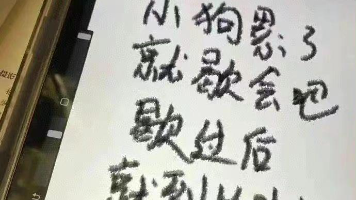 小狗累了
就歇会吧
歇过后
就到